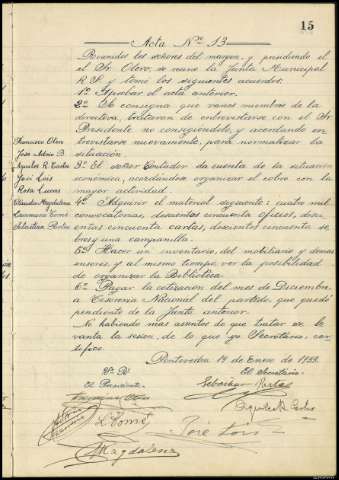 15
Acta Nº 13
Reunidos los señores del margen, y presidiendo el
el Sr. Otero, se reune la Junta Municipal
R.S. y tomó los siguientes acuerdos:
1º Aprobar el acta anterior.
2º Se consigna que varios miembros de la
directiva, trataran de entrevistarse con el Sr.
Presidente no consiguiendolo, y acordando en
trevistarse nuevamente, para normalizar la
situación.
3º El señor Contador da cuenta de la situación
económica, acordándose organizar el cobro con la
mayor actividad.
4º Adquirir el material siguiente: cuatro mil
convocatorias, doscientos cincuenta oficios, dosci
entas cincuenta cartas, doscientos cincuenta so
bres y una campanilla.
5º Hacer un inventario, del mobiliario y demas
enseres, y al mismo tiempo ver la posibilidad
de organizar la Biblioteca.
6º Pagar la cotización del mes de Diciembre
a Tesoreria Nacional del partido que quedó
pendiente de la Junta anterior.
No habiendo mas asuntos de que tratar se le
vanta la sesion, de lo que yo Secretario, cer
tifico.
Pontevedra 14 de Enero de 1933
Francisco Otero
José Adrio B.
Aquiles R. Cadra
José Luis
Rosa Lucas
Claudio Magdalena
Laureano Tomé
Sebastian
Vº Bº
El Presidente
El Secretario
Francisco Otero
Sebastian
L. Tomé
José Luis
Magdalena